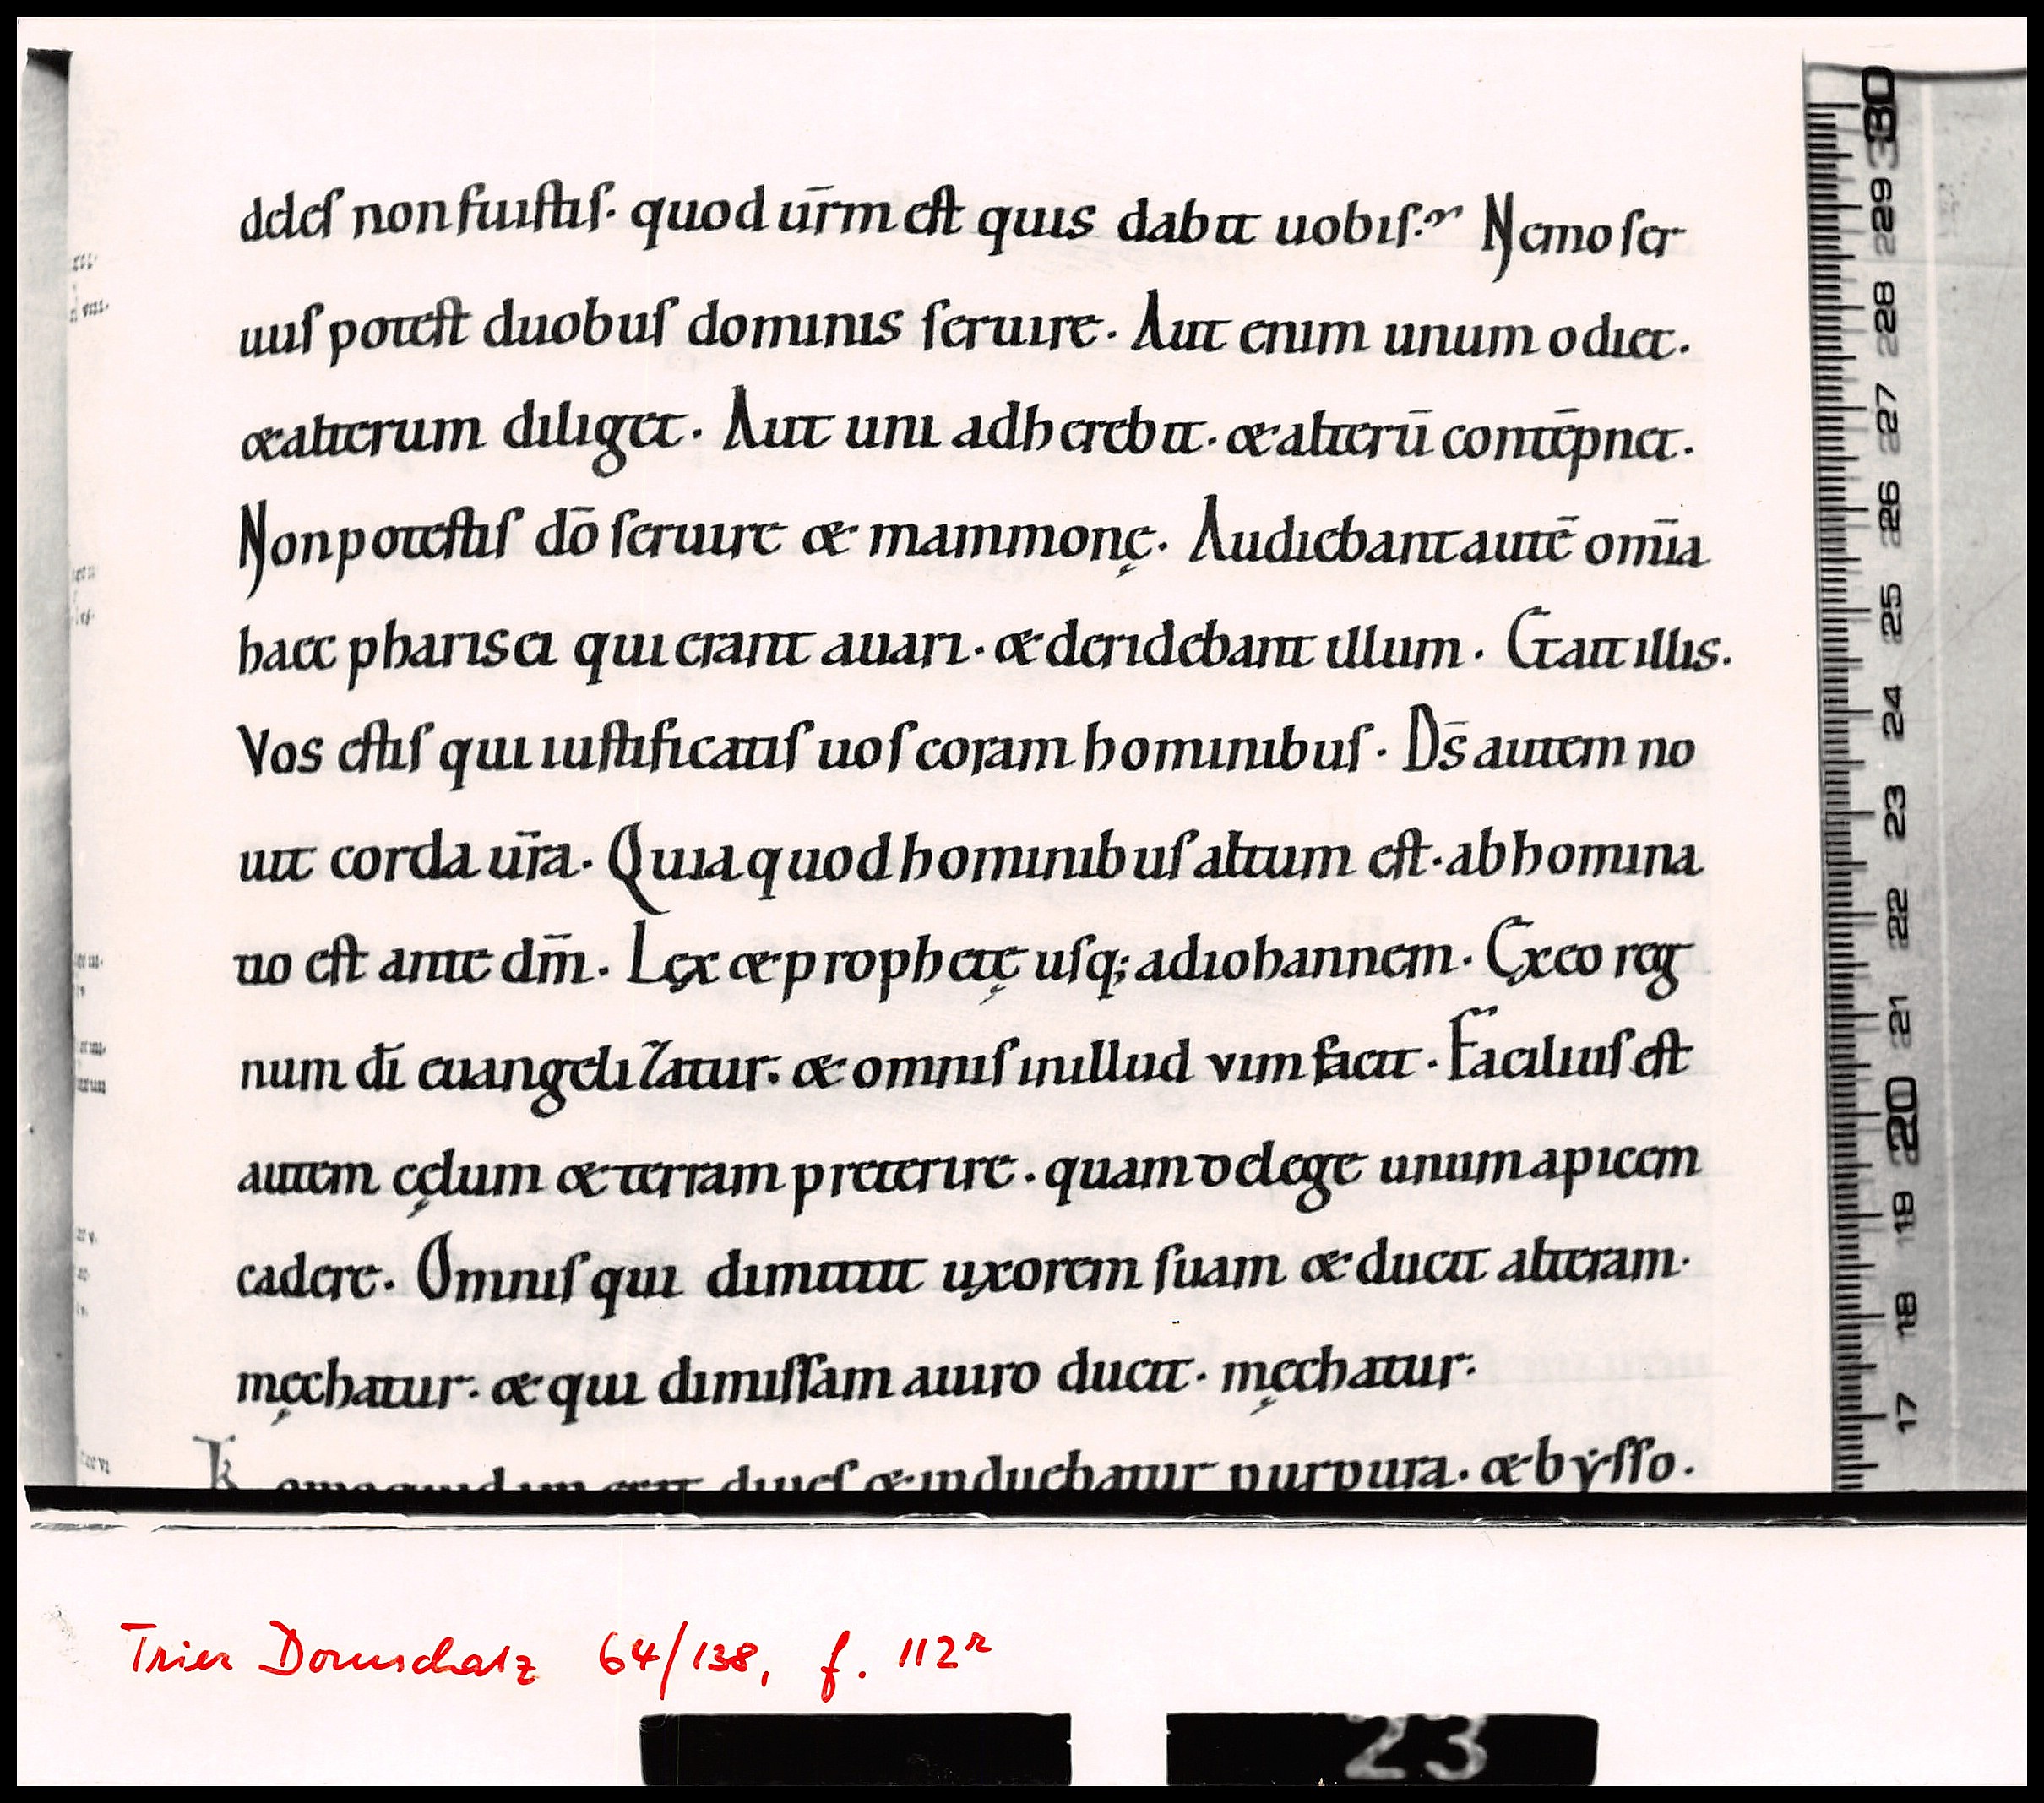 deles non fuistis. quod ur̄m est quis dabit uobis? Nemo ser
uus potest duobus dominis seruire. Aut enim unum odiet.
& alterum diliget. Aut uni adherebit. & alterū contēpnet.
Non potestis dō seruire & mammonę. Audiebant autē om̄ia
haec pharisei qui erant auari. & deridebant illum. Et ait illis.
Vos estis qui iustificatis uos coram hominibus. Ds̄ autem no
uit corda ur̄a. Quia quod hominibus altum est. abhomina
tio est ante dm̄. Lex & prophetę usq; ad iohannem. Ex eo reg
num dī euangelizatur. & omnis in illud vim facit. Facilius est
autem cęlum & terram preterire. quam de lege unum apicem
cadere. Omnis qui dimittit uxorem suam & ducit alteram.
męchatur. & qui dimissam a uiro ducit. męchatur.
homo quidam erat diues & induebatur purpura. & bysso.
Trier Domschatz 64/138, f. 112r
23
30
29
28
27
26
25
24
23
22
21
20
19
18
17